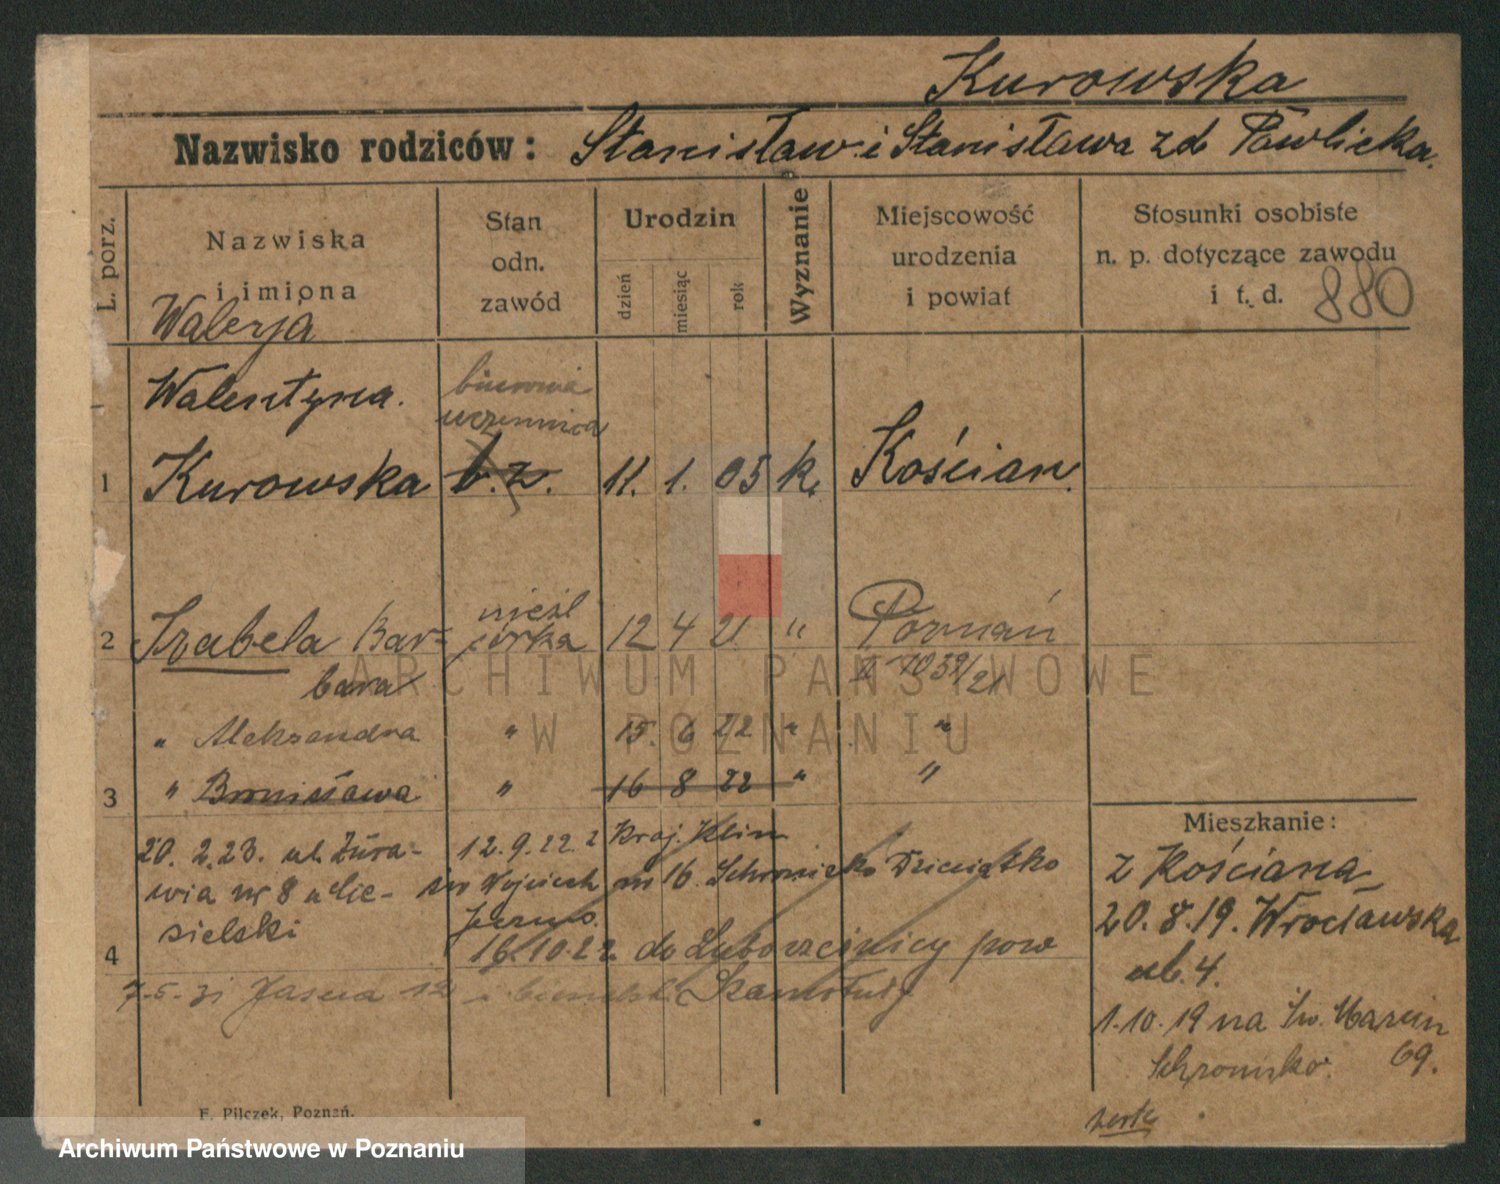 Kurowska
Nazwisko rodziców: Stanisław i Stanisława zd Pawlicka.
L. porz.
Nazwiska
i imiona
Stan
odn.
zawód
Urodzin
dzień
miesiąc
rok
Wyznanie
Miejscowość
urodzenia
i powiat
Stosunki osobiste
n. p. dotyczące zawodu
i t. d.
880
Walerja
Walentyna.
biurowa
uczennica
1 Kurowska b.z. 11. 1. 05 k. Kościan.
nieśl
2 Izabela Bar= córka 12 4 21 " Poznań
bara 1039/21
" Aleksandra " 15. 6 22 " "
3 " Bronisława " 16 8 22 " "
Mieszkanie:
20. 2.23. ul. Żóra- 12.9.22. z Kraj. Klin
wia nr 8 u Cie- św Wojciech nr 16. Schronisko Dzieciątko
sielski Jezus.
4 16.10.22. do pow
7.5.31 Jasna 12 Szamotuły
z Kościana
20.8.19. Wrocławska
4.
1.10.19 na Św. Marcin
69.
Schronisko.
F. Pilczek, Poznań.
ARCHIWUM PAŃSTWOWE
W POZNANIU
Archiwum Państwowe w Poznaniu